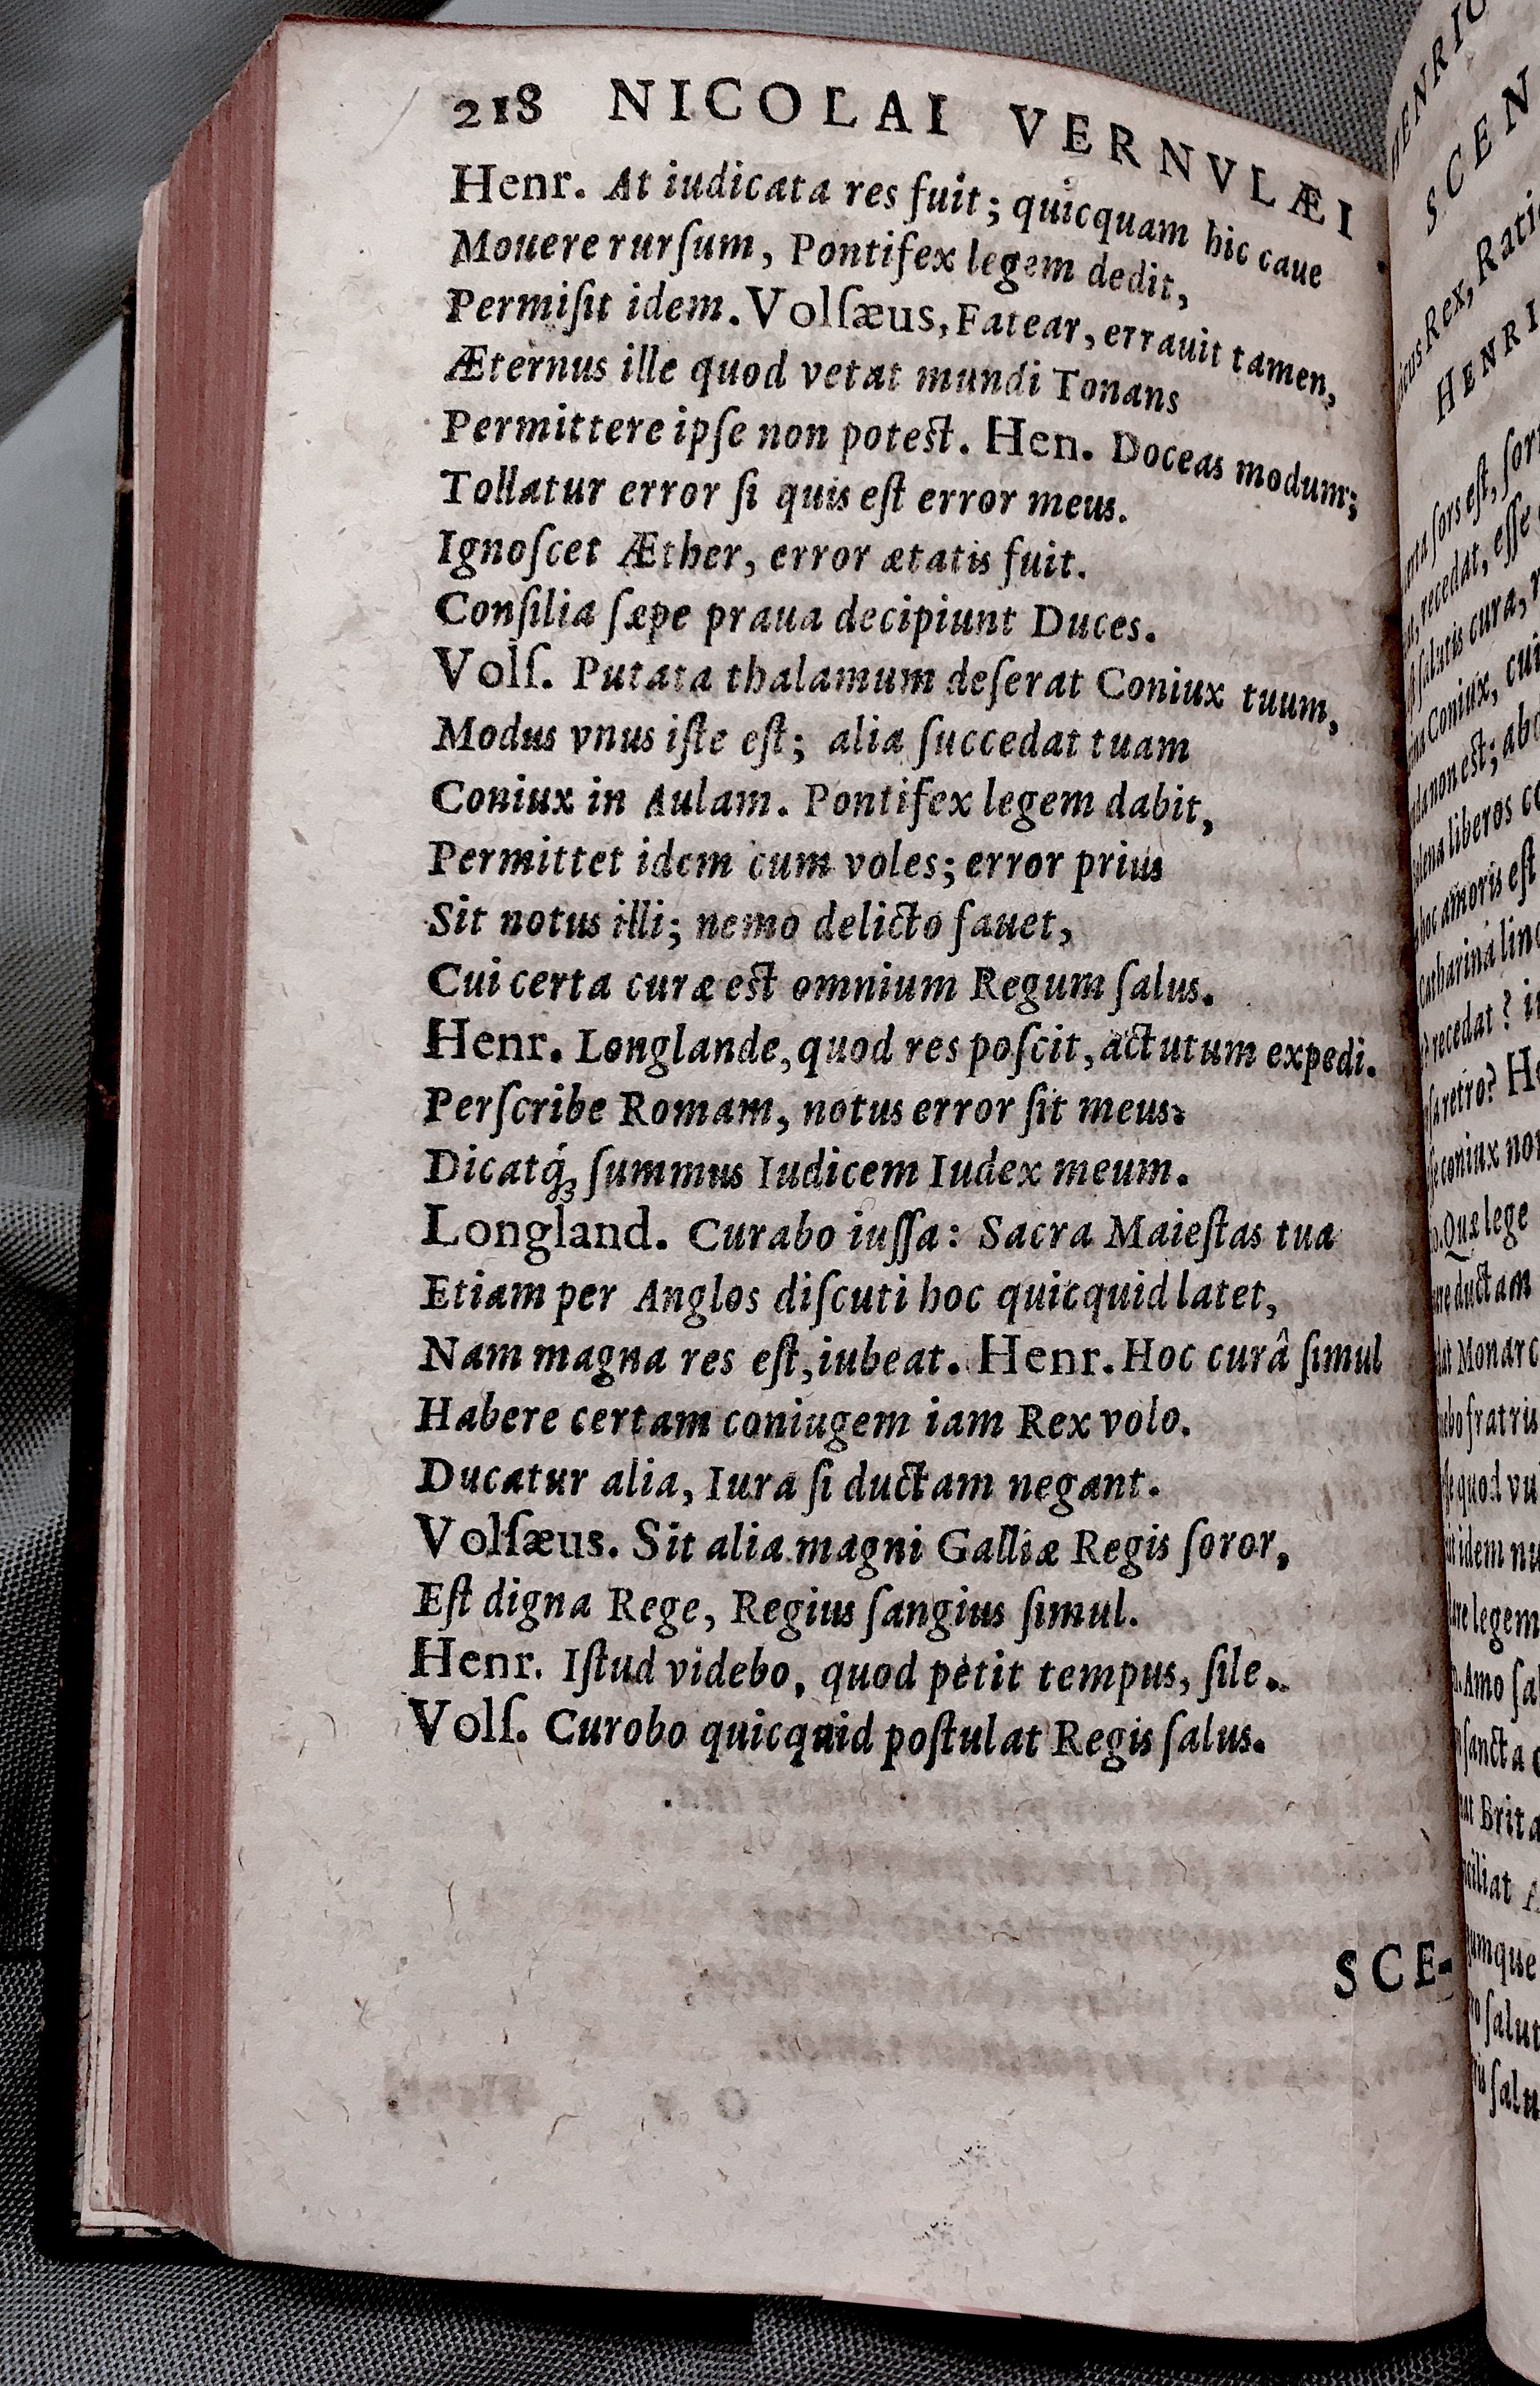 218 NICOLAI VERNVLÆI
Henr. At iudicata res fuit; quicquam hic caue
Mouere rurſum, Pontifex legem dedit,
Permiſit idem. Volſæus, Fatear, errauit tamen,
Æternus ille quod vetat mundi Tonans
Permittere ipſe non poteſt. Hen. Doceas modum;
Tollatur error ſi quis eſt error meus.
Ignoſcet Æther, error ætatis fuit.
Conſilia ſæpe praua decipiunt Duces.
Volſ. Putata thalamum deſerat Coniux tuum,
Modus vnus iſte eſt; alia ſuccedat tuam
Coniux in Aulam. Pontifex legem dabit,
Permittet idem cum voles; error prius
Sit notus illi; nemo delicto fauet,
Cui certa curæ eſt omnium Regum ſalus.
Henr. Longlande, quod res poſcit, actutum expedi.
Perſcribe Romam, notus error ſit meus:
Dicatq́; ſummus Iudicem Iudex meum.
Longland. Curabo iuſſa: Sacra Maieſtas tua
Etiam per Anglos diſcuti hoc quicquid latet,
Nam magna res eſt, iubeat. Henr. Hoc curâ ſimul
Habere certam coniugem iam Rex volo.
Ducatur alia, Iura ſi ductam negant.
Volſæus. Sit alia magni Galliæ Regis ſoror,
Eſt digna Rege, Regius ſangius ſimul.
Henr. Iſtud videbo, quod petit tempus, ſile.
Volſ. Curobo quicquid poſtulat Regis ſalus.
SCE-
HENRIC
SCEN
Rex, Rati
HENRI
ſors eſt,
recedat, eſſe
ſalutis cura,
Coniux, cui
non eſt;
liberos
hoc amoris eſt
Catharina
recedat?
retro? H
coniux
Quæ lege
ductam
Monarc
fratris
quod
idem
legem
Amo
ſancta
Brita